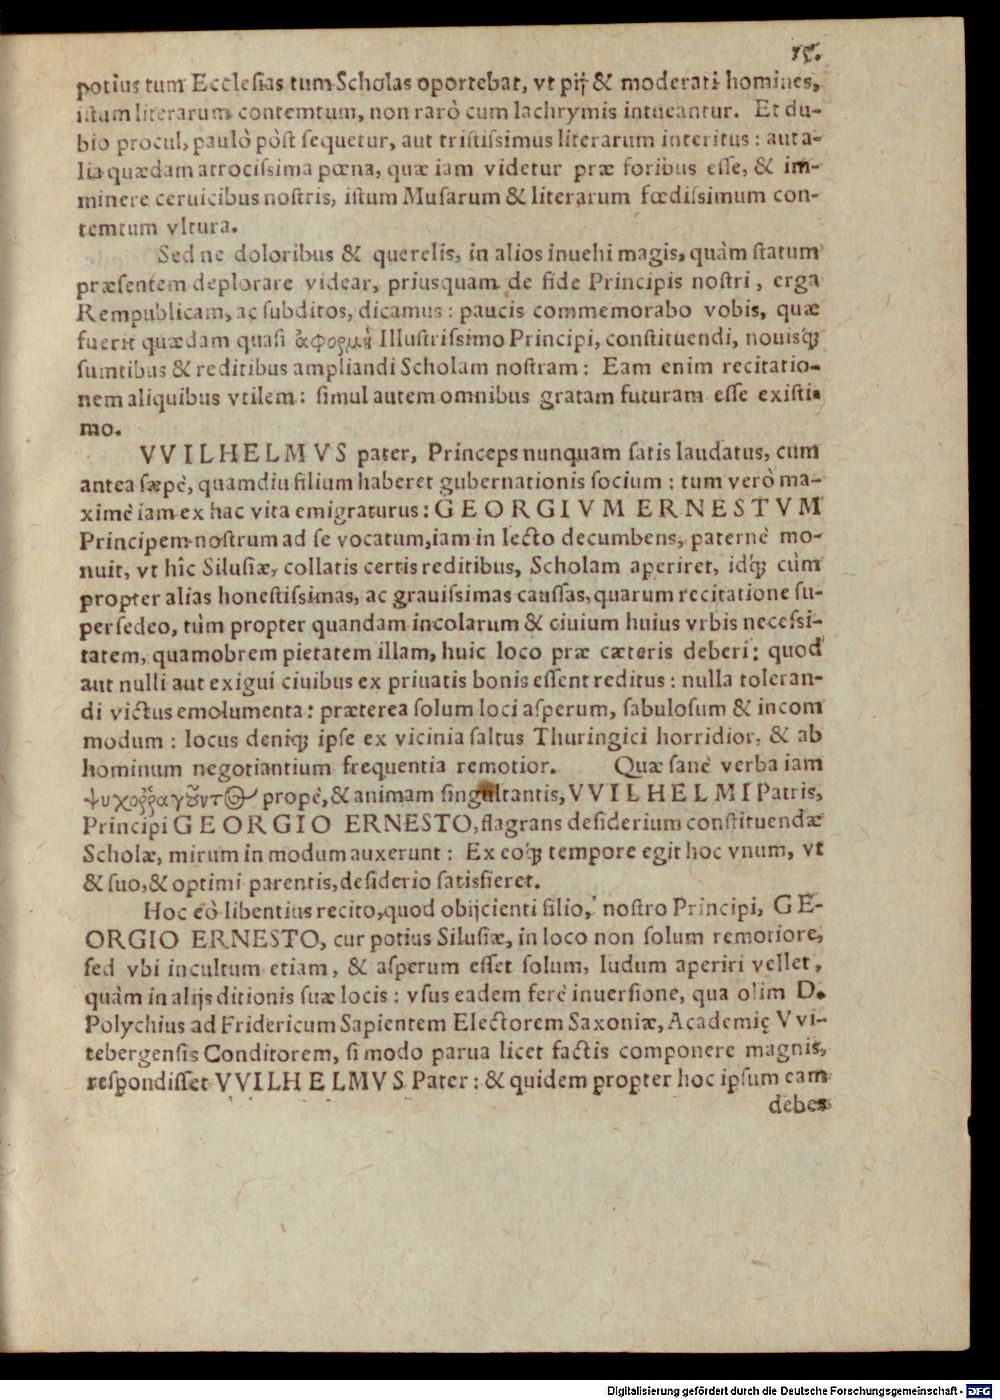 15.
potius tum Ecclesias tum Scholas oportebat, vt pij & moderati homines,
istum literarum contemtum, non rarò cum lachrymis intueantur. Et du-
bio procul, paulò pòst sequetur, aut tristissimus literarum interitus: aut a-
lia quædam atrocissima pœna, quæ iam videtur præ foribus esse, & im-
minere ceruicibus nostris, istum Musarum & literarum fœdissimum con-
temtum vltura.
Sed ne doloribus & querelis, in alios inuehi magis, quàm statum
præsentem deplorare videar, priusquam de fide Principis nostri, erga
Rempublicam, ac subditos, dicamus: paucis commemorabo vobis, quæ
fuerit quædam quasi ἀφορμὴ Illustrissimo Principi, constituendi, nouisq́;
sumtibus & reditibus ampliandi Scholam nostram: Eam enim recitatio-
nem aliquibus vtilem: simul autem omnibus gratam futuram esse existi-
mo.
VVILHELMVS pater, Princeps nunquam satis laudatus, cùm
antea sæpè, quamdiu filium haberet gubernationis socium: tum verò ma-
ximè iam ex hac vita emigraturus: GEORGIVM ERNESTVM
Principem nostrum ad se vocatum, iam in lecto decumbens, paternè mo-
nuit, vt hîc Silusiæ, collatis certis reditibus, Scholam aperiret, idq́; cùm
propter alias honestissimas, ac grauissimas caussas, quarum recitatione su-
persedeo, tùm propter quandam incolarum & ciuium huius vrbis necessi-
tatem, quamobrem pietatem illam, huic loco præ cæteris deberi: quod
aut nulli aut exigui ciuibus ex priuatis bonis essent reditus: nulla toleran-
di victus emolumenta: præterea solum loci asperum, sabulosum & incom
modum: locus deniq; ipse ex vicinia saltus Thuringici horridior, & ab
hominum negotiantium frequentia remotior. Quæ sanè verba iam
ψυχοῤῥαγοῦντος propè, & animam singultantis, VVILHELMI Patris,
Principi GEORGIO ERNESTO, flagrans desiderium constituendæ
Scholæ, mirum in modum auxerunt: Ex eoq́; tempore egit hoc vnum, vt
& suo, & optimi parentis, desiderio satisfieret.
Hoc eò libentius recito, quod obijcienti filio, nostro Principi, GE-
ORGIO ERNESTO, cur potius Silusiæ, in loco non solum remotiore,
sed vbi incultum etiam, & asperum esset solum, ludum aperiri vellet,
quàm in alijs ditionis suæ locis: vsus eadem ferè inuersione, qua olim D.
Polychius ad Fridericum Sapientem Electorem Saxoniæ, Academię VVi-
tebergensis Conditorem, si modo parua licet factis componere magnis,
respondisset VVILHELMVS Pater: & quidem propter hoc ipsum eam
debes
Digitalisierung gefördert durch die Deutsche Forschungsgemeinschaft - DFG